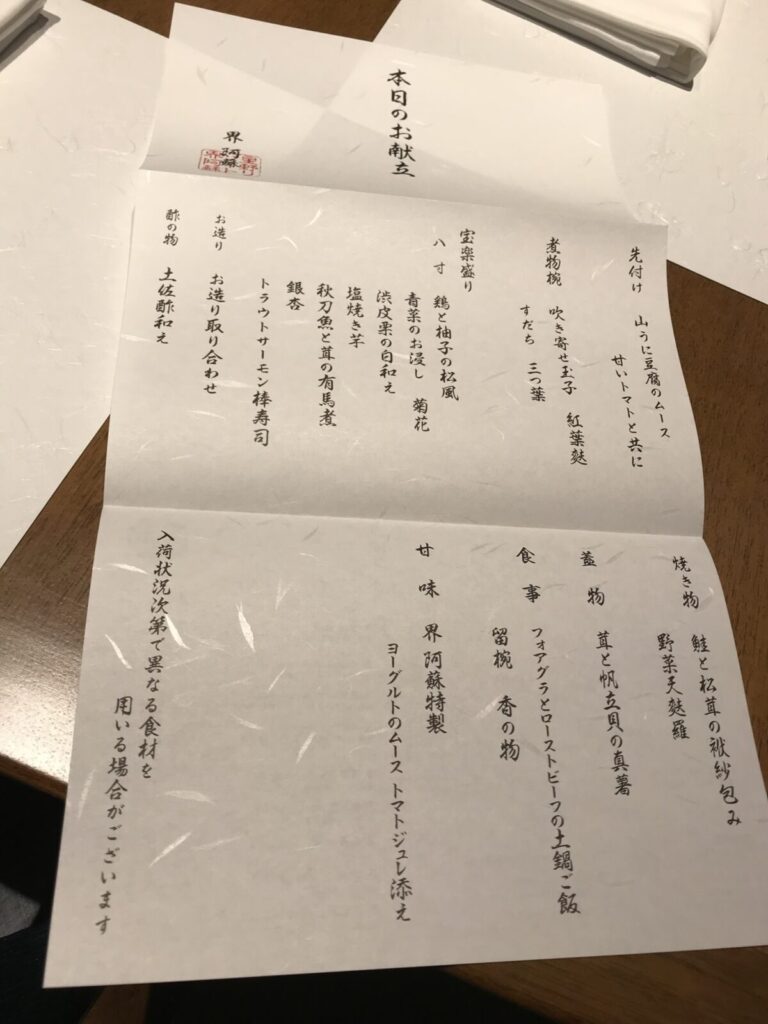 本日のお献立
界 阿蘇
先付け 山うに豆腐のムース
甘いトマトと共に
煮物椀 吹き寄せ玉子 紅葉麩
すだち 三つ葉
宝楽盛り
八寸 鶏と柚子の松風
青菜のお浸し 菊花
渋皮栗の白和え
塩焼き芋
秋刀魚と茸の有馬煮
銀杏
トラウトサーモン棒寿司
お造り お造り取り合わせ
酢の物 土佐酢和え
焼き物 鮭と松茸の袱紗包み
野菜天麩羅
蓋物 茸と帆立貝の真薯
食事 フォアグラとローストビーフの土鍋ご飯
留椀 香の物
甘味 界阿蘇特製
ヨーグルトのムース トマトジュレ添え
入荷状況次第で異なる食材を
用いる場合がございます